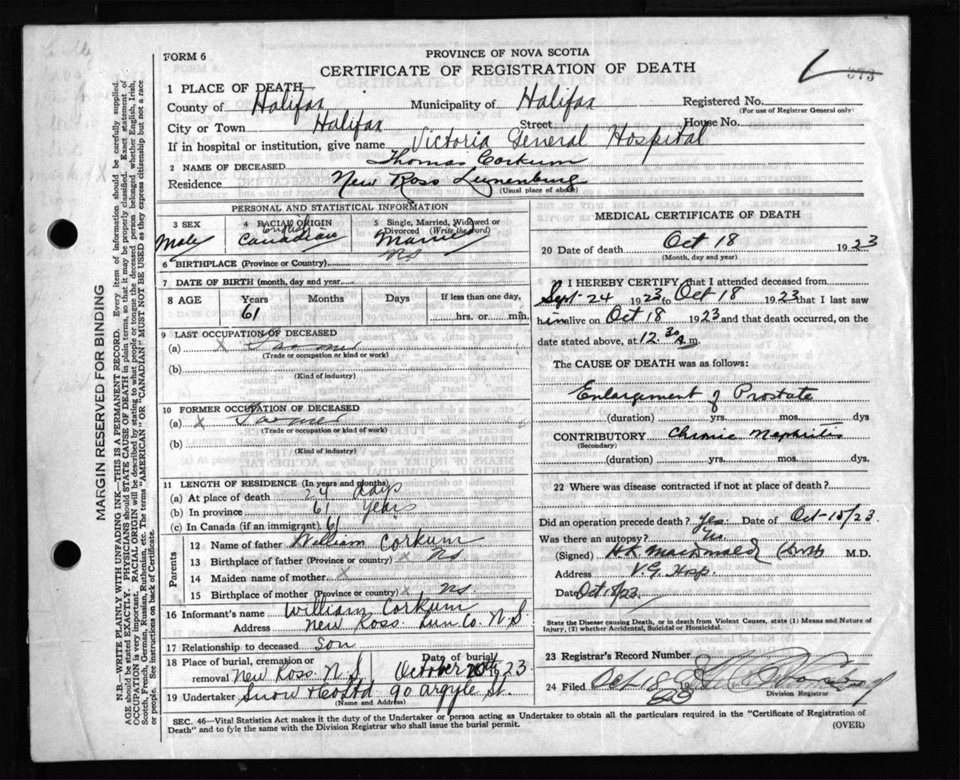 FORM 6
PROVINCE OF NOVA SCOTIA
CERTIFICATE OF REGISTRATION OF DEATH
373
1 PLACE OF DEATH
County of Halifax Municipality of Halifax Registered No.
(For use of Registrar General only)
City or Town Halifax Street House No.
If in hospital or institution, give name Victoria General Hospital
2 NAME OF DECEASED Thomas Corkum
Residence New Ross Lunenburg
(Usual place of abode)
PERSONAL AND STATISTICAL INFORMATION
3 SEX 4 RACIAL ORIGIN 5 Single, Married, Widowed or Divorced (Write the word)
Male English Canadian Married
6 BIRTHPLACE (Province or Country) NS
7 DATE OF BIRTH (month, day and year)
8 AGE Years Months Days If less than one day,
61 hrs. or min.
9 LAST OCCUPATION OF DECEASED
(a) X Farmer
(Trade or occupation or kind or work)
(b)
(Kind of industry)
10 FORMER OCCUPATION OF DECEASED
(a) X Farmer
(Trade or occupation or kind of work)
(b)
(Kind of industry)
11 LENGTH OF RESIDENCE (In years and months)
(a) At place of death 24 days
(b) In province 61 years
(c) In Canada (if an immigrant) 61
Parents
12 Name of father William Corkum
13 Birthplace of father (Province or country) NS
14 Maiden name of mother X
15 Birthplace of mother (Province or country) X NS
16 Informant's name William Corkum
Address New Ross Lun. Co. N.S.
17 Relationship to deceased Son
18 Place of burial, cremation or removal New Ross N.S. Date of burial October 20th 1923
19 Undertaker Snow & Co Ltd 90 Argyle St.
(Name and Address)
MEDICAL CERTIFICATE OF DEATH
20 Date of death Oct 18 1923
(Month, day and year)
21 I HEREBY CERTIFY that I attended deceased from
Sept 24 1923 to Oct 18 1923 that I last saw
him alive on Oct 18 1923 and that death occurred, on
date stated above, at 12.30 A.m.
The CAUSE OF DEATH was as follows:
Enlargment of Prostate
(duration) yrs. mos. dys
CONTRIBUTORY Chronic Nephritis
(Secondary)
(duration) yrs. mos. dys.
22 Where was disease contracted if not at place of death?
Did an operation precede death? Yes Date of Oct 15/23
Was there an autopsy?
(Signed) MacDonald M.D.
Address V.G. Hosp.
Date Oct 18/23
State the Disease causing Death, or in death from Violent Causes, state (1) Means and Nature of
Injury, (2) whether Accidental, Suicidal or Homicidal.
23 Registrar's Record Number
24 Filed Oct 18 23
Division Registrar
SEC. 46—Vital Statistics Act makes it the duty of the Undertaker or person acting as Undertaker to obtain all the particulars required in the "Certificate of Registration of
Death" and to fyle the same with the Division Registrar who shall issue the burial permit.
(OVER)
MARGIN RESERVED FOR BINDING
N.B.—WRITE PLAINLY WITH UNFADING INK—THIS IS A PERMANENT RECORD. Every item of information should be carefully supplied.
AGE should be stated EXACTLY. PHYSICIANS should STATE CAUSE OF DEATH in plain terms, so that it may be properly classified. Exact statement of
OCCUPATION is very important. RACIAL ORIGIN will be described by stating to what people or tongue the deceased person belonged whether English, Irish,
Scotch, French, German, Russian, Ruthenian, etc. The terms "AMERICAN" OR "CANADIAN" MUST NOT BE USED as they express citizenship but not a race
or people. See instructions on back of Certificate.